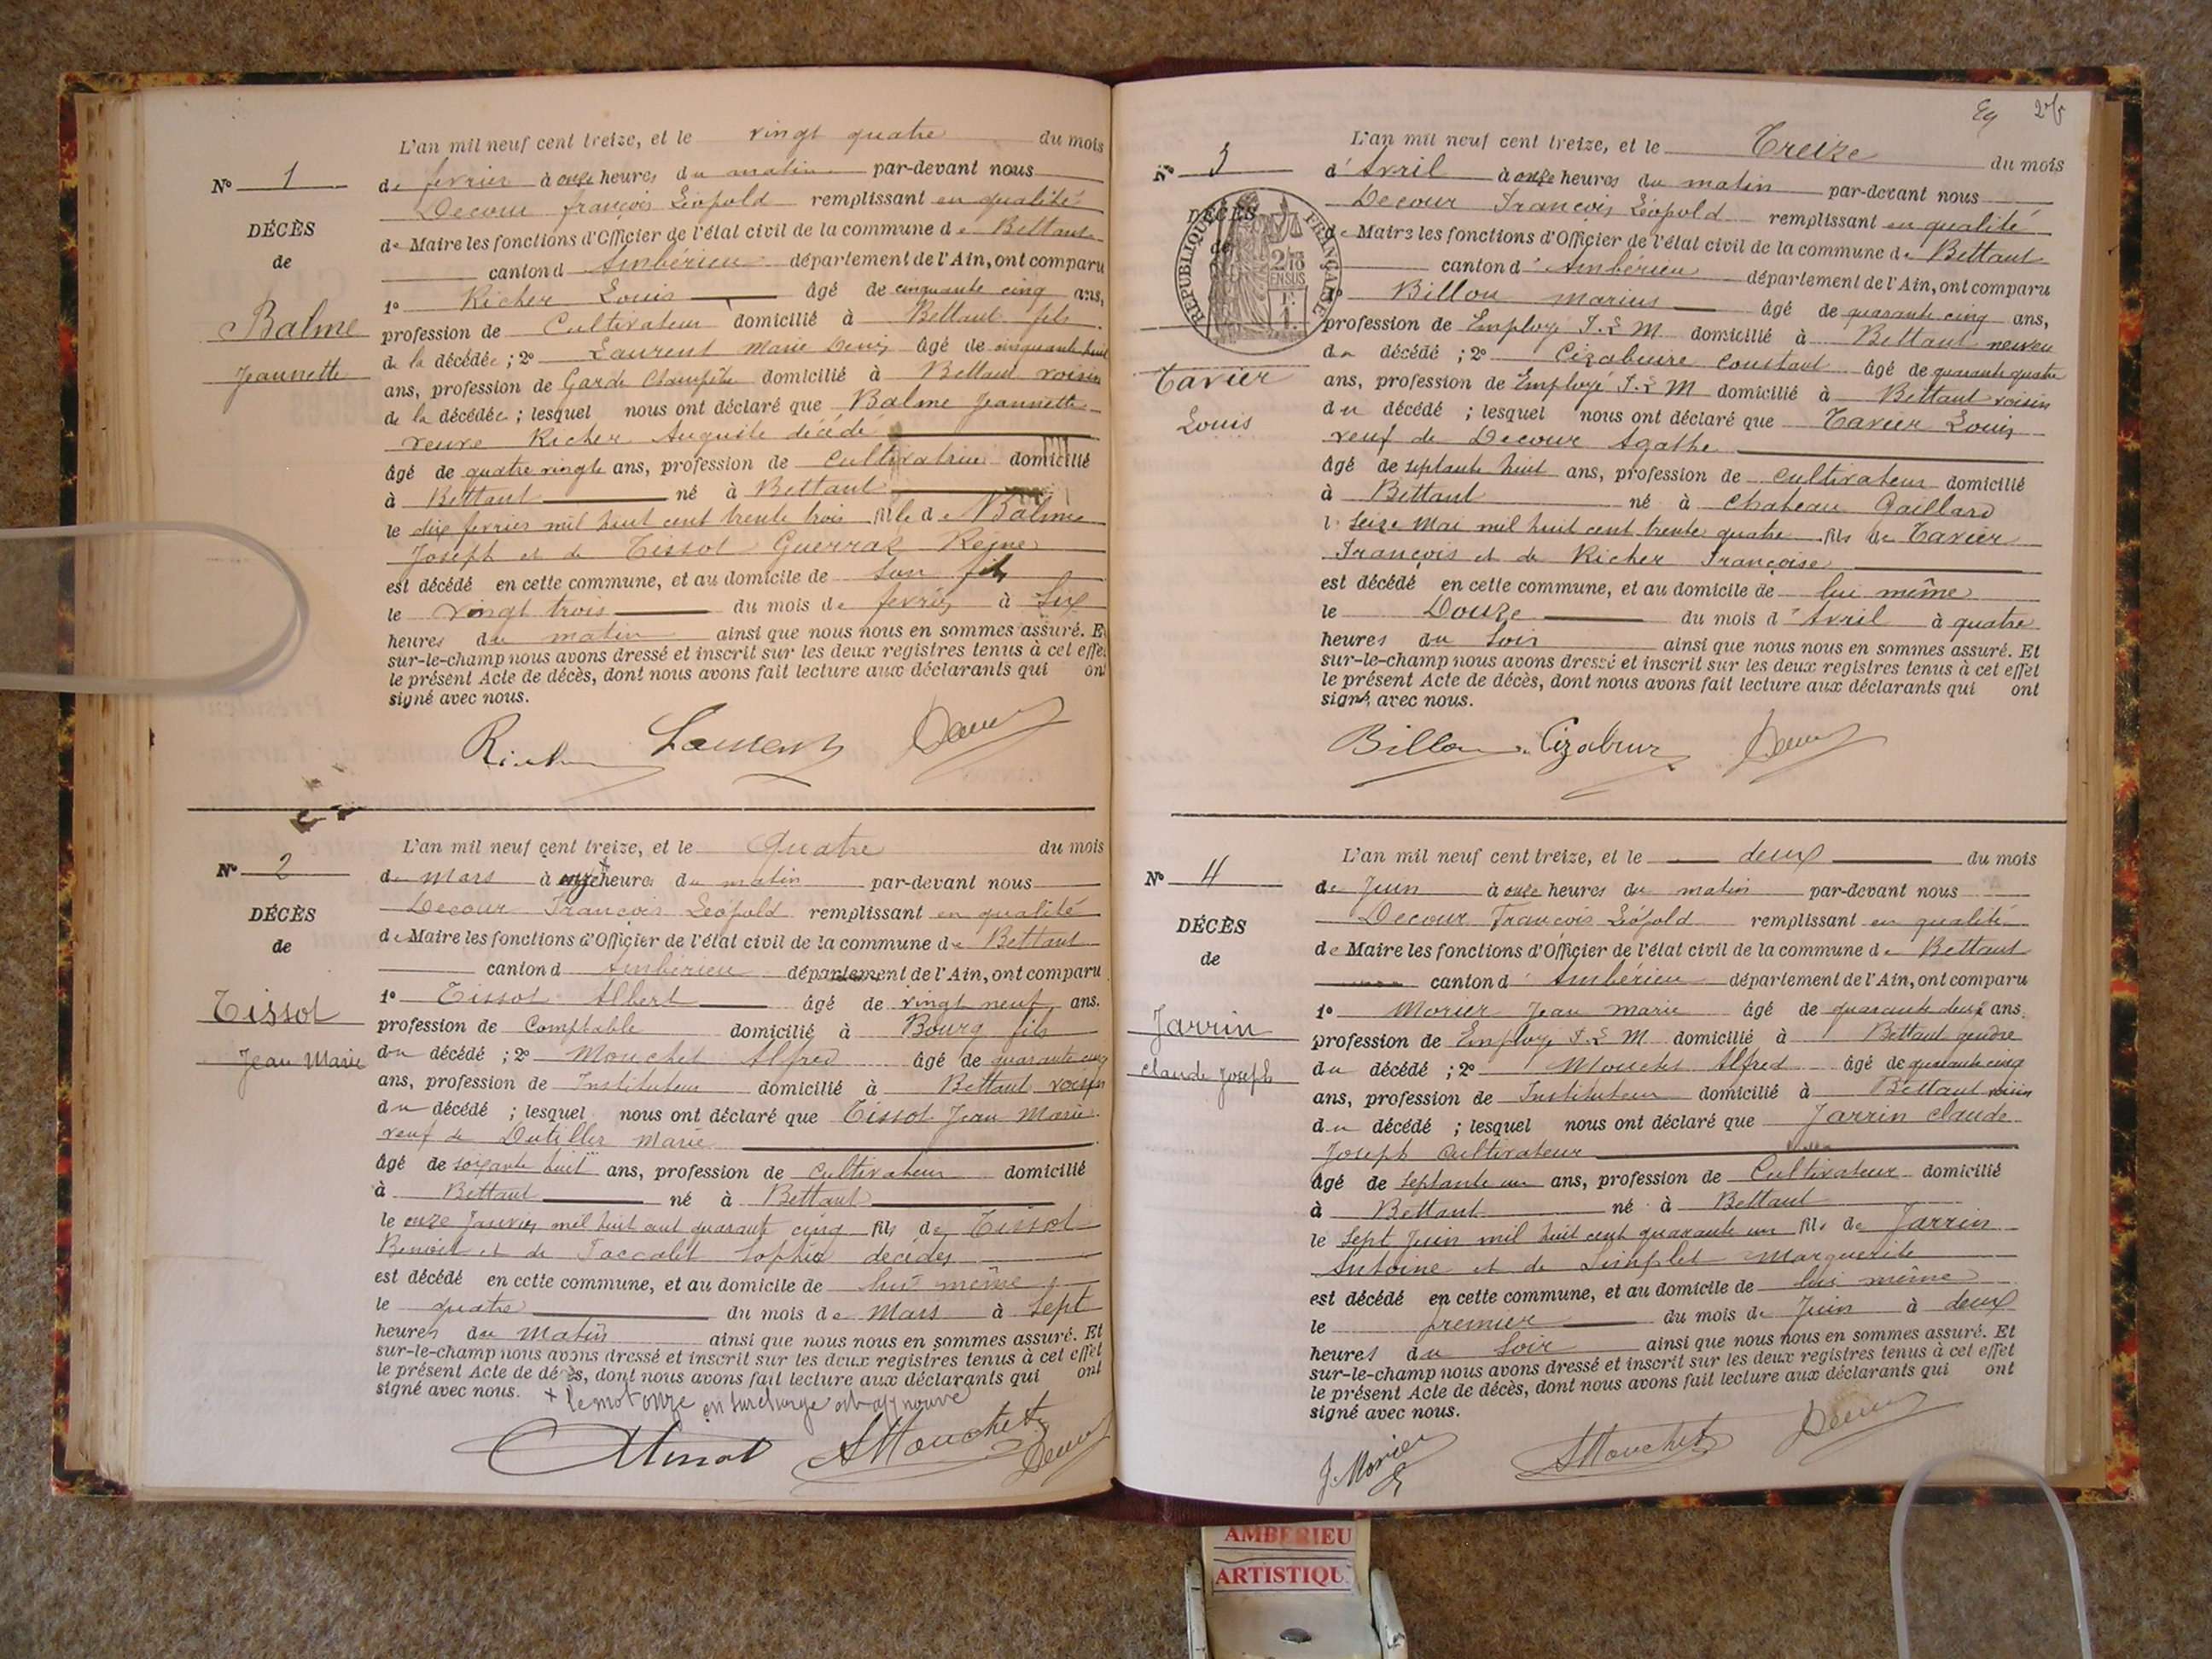 L'an mil neuf cent treize, et le vingt quatre du mois
N° 1
de fevrier à onze heures du matin par-devant nous
Decour françois Léopold remplissant en qualité
DÉCÈS
de Maire les fonctions d'Officier de l'état civil de la commune de Bettant
de
canton d Ambérieu département de l'Ain, ont comparu
1° Richer Louis âgé de cinquante cinq ans,
Balme
profession de Cultivateur domicilié à Bettant fils
Jeannette
de la décédée ; 2° Laurent Marie Denis âgé de cinquante huit
ans, profession de Garde Champêtre domicilié à Bettant voisin
de la décédée ; lesquel nous ont déclaré que Balme Jeannette
veuve Richer Auguste décédé
âgé de quatre vingts ans, profession de Cultivatrice domicilié
à Bettant né à Bettant
le dix fevrier mil huit cent trente trois fille de Balme
Joseph et de Tissot Guerraz Reine
est décédé en cette commune, et au domicile de son fils
le vingt trois du mois de fevrier à six
heures du matin ainsi que nous nous en sommes assuré. E
sur-le-champ nous avons dressé et inscrit sur les deux registres tenus à cet effe
le présent Acte de décès, dont nous avons fait lecture aux déclarants qui on
signé avec nous.
Richer Laurent Decour
L'an mil neuf cent treize, et le Quatre du mois
N° 2
de Mars à onze heures du matin par-devant nous
Decour François Léopold remplissant en qualité
DÉCÈS
de Maire les fonctions d'Officier de l'état civil de la commune de Bettant
de
canton d Ambérieu département de l'Ain, ont comparu
1° Tissot Albert âgé de vingt neuf ans.
Tissot
profession de Comptable domicilié à Bourg fils
Jean Marie
du décédé ; 2° Mouchet Alfred âgé de quarante cinq
ans, profession de Instituteur domicilié à Bettant voisin
du décédé ; lesquel nous ont déclaré que Tissot Jean Marie
veuf de Dutillier Marie
âgé de soixante huit ans, profession de Cultivateur domicilié
à Bettant né à Bettant
le onze Janvier mil huit cent quarante cinq fils de Tissot
Benoit et de Sophie décédés
est décédé en cette commune, et au domicile de lui même
le quatre du mois de Mars à sept
heures du Matin ainsi que nous nous en sommes assuré. Et
sur-le-champ nous avons dressé et inscrit sur les deux registres tenus à cet effet
le présent Acte de décès, dont nous avons fait lecture aux déclarants qui ont
signé avec nous. + le mot onze en surcharge est approuvé
ATissot AMouchet Decour
Eg
L'an mil neuf cent treize, et le Treize du mois
N° 3
d' Avril à onze heures du matin par-devant nous
Decour François Léopold remplissant en qualité
DÉCÈS
de
RÉPUBLIQUE FRANÇAISE
de Maire les fonctions d'Officier de l'état civil de la commune de Bettant
canton d' Ambérieu département de l'Ain, ont comparu
1° Billon Marius âgé de quarante cinq ans,
profession de Employé P.L.M domicilié à Bettant neveu
du décédé ; 2° Cizabuire Constant âgé de quarante quatre
Tavier
ans, profession de Employé P.L.M domicilié à Bettant voisin
Louis
du décédé ; lesquel nous ont déclaré que Tavier Louis
veuf de Decour Agathe
âgé de septante huit ans, profession de Cultivateur domicilié
à Bettant né à Chateau Gaillard
le seize Mai mil huit cent trente quatre fils de Tavier
François et de Richer Françoise
est décédé en cette commune, et au domicile de lui même
le Douze du mois d' Avril à quatre
heures du Soir ainsi que nous nous en sommes assuré. Et
sur-le-champ nous avons dressé et inscrit sur les deux registres tenus à cet effet
le présent Acte de décès, dont nous avons fait lecture aux déclarants qui ont
signé avec nous.
Billon Decour
L'an mil neuf cent treize, et le deux du mois
N° 4
de Juin à onze heures du matin par-devant nous
Decour François Léopold remplissant en qualité
DÉCÈS
de Maire les fonctions d'Officier de l'état civil de la commune de Bettant
de
canton d' Ambérieu département de l'Ain, ont comparu
1° Morier Jean Marie âgé de quarante deux ans.
Jarrin
profession de Employé P.L.M domicilié à Bettant gendre
Claude Joseph
du décédé ; 2° Mouchet Alfred âgé de quarante cinq
ans, profession de Instituteur domicilié à Bettant voisin
du décédé ; lesquel nous ont déclaré que Jarrin Claude
Joseph Cultivateur
âgé de septante un ans, profession de Cultivateur domicilié
à Bettant né à Bettant
le sept Juin mil huit cent quarante un fils de Jarrin
Antoine et de Marguerite
est décédé en cette commune, et au domicile de lui même
le premier du mois de Juin à deux
heures du Soir ainsi que nous nous en sommes assuré. Et
sur-le-champ nous avons dressé et inscrit sur les deux registres tenus à cet effet
le présent Acte de décès, dont nous avons fait lecture aux déclarants qui ont
signé avec nous.
J. Morier AMouchet Decour
AMBERIEU
ARTISTIQU